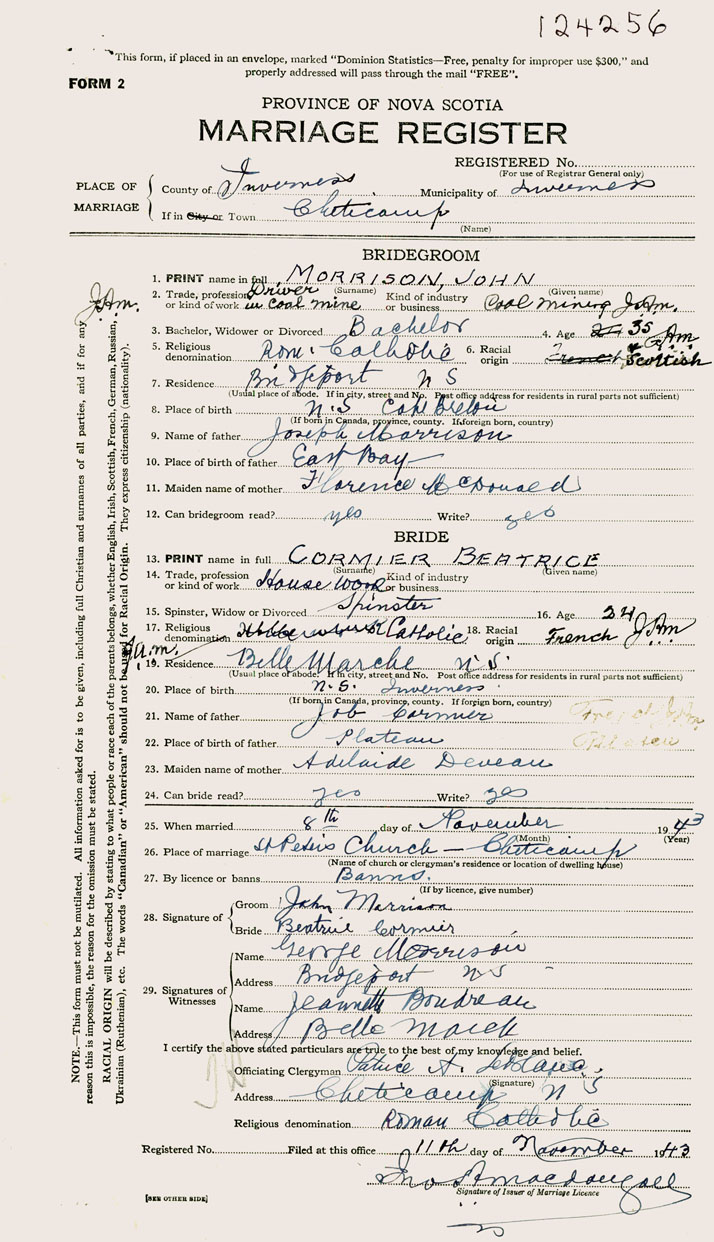 124256
This form, if placed in an envelope, marked "Dominion Statistics—Free, penalty for improper use $300," and
properly addressed will pass through the mail "FREE".
FORM 2
PROVINCE OF NOVA SCOTIA
MARRIAGE REGISTER
REGISTERED No.
(For use of Registrar General only)
PLACE OF MARRIAGE
County of Inverness Municipality of Inverness
If in City or Town Cheticamp
(Name)
BRIDEGROOM
1. PRINT name in full MORRISON, JOHN
(Surname) (Given name)
2. Trade, profession or kind of work Driver in coal mine Kind of industry or business Coal mining J.A.m.
J.A.m.
3. Bachelor, Widower or Divorced Bachelor 4. Age 35 J.A.m
5. Religious denomination Rom. Catholic 6. Racial origin French Scottish
7. Residence Bridgeport N S
(Usual place of abode. If in city, street and No. Post office address for residents in rural parts not sufficient)
8. Place of birth N.S Cape Breton
(If born in Canada, province, county. If foreign born, country)
9. Name of father Joseph Morrison
10. Place of birth of father East Bay
11. Maiden name of mother Florence McDonald
12. Can bridegroom read? yes Write? yes
BRIDE
13. PRINT name in full CORMIER BEATRICE
(Surname) (Given name)
14. Trade, profession or kind of work House work Kind of industry or business
15. Spinster, Widow or Divorced Spinster 16. Age 24
17. Religious denomination Catholic 18. Racial origin French J.A.m
J.a.m.
19. Residence Belle Marche N.S.
(Usual place of abode. If in city, street and No. Post office address for residents in rural parts not sufficient)
20. Place of birth N.S. Inverness
(If born in Canada, province, county. If foreign born, country)
21. Name of father Job Cormier
22. Place of birth of father Plateau
23. Maiden name of mother Adelaide Deveau
24. Can bride read? yes Write? yes
25. When married 8th day of November 1943
(Month) (Year)
26. Place of marriage St Peters Church — Cheticamp
(Name of church or clergyman's residence or location of dwelling house)
27. By licence or banns Banns.
(If by licence, give number)
28. Signature of
Groom John Morrison
Bride Beatrice Cormier
29. Signatures of Witnesses
Name George Morrison
Address Bridgeport N S
Name Jeannette Boudreau
Address Belle March
I certify the above stated particulars are true to the best of my knowledge and belief.
Officiating Clergyman Patrice A. LeBlanc.
(Signature)
Address Cheticamp N S
Religious denomination Roman Catholic
Registered No. Filed at this office 11th day of November 1943
Jno A macdougall
Signature of Issuer of Marriage Licence
[SEE OTHER SIDE]
NOTE.—This form must not be mutilated. All information asked for is to be given, including full Christian and surnames of all parties, and if for any
reason this is impossible, the reason for the omission must be stated.
RACIAL ORIGIN will be described by stating to what people or race each of the parents belongs, whether English, Irish, Scottish, French, German, Russian,
Ukrainian (Ruthenian), etc. The words "Canadian" or "American" should not be used for Racial Origin. They express citizenship (nationality).